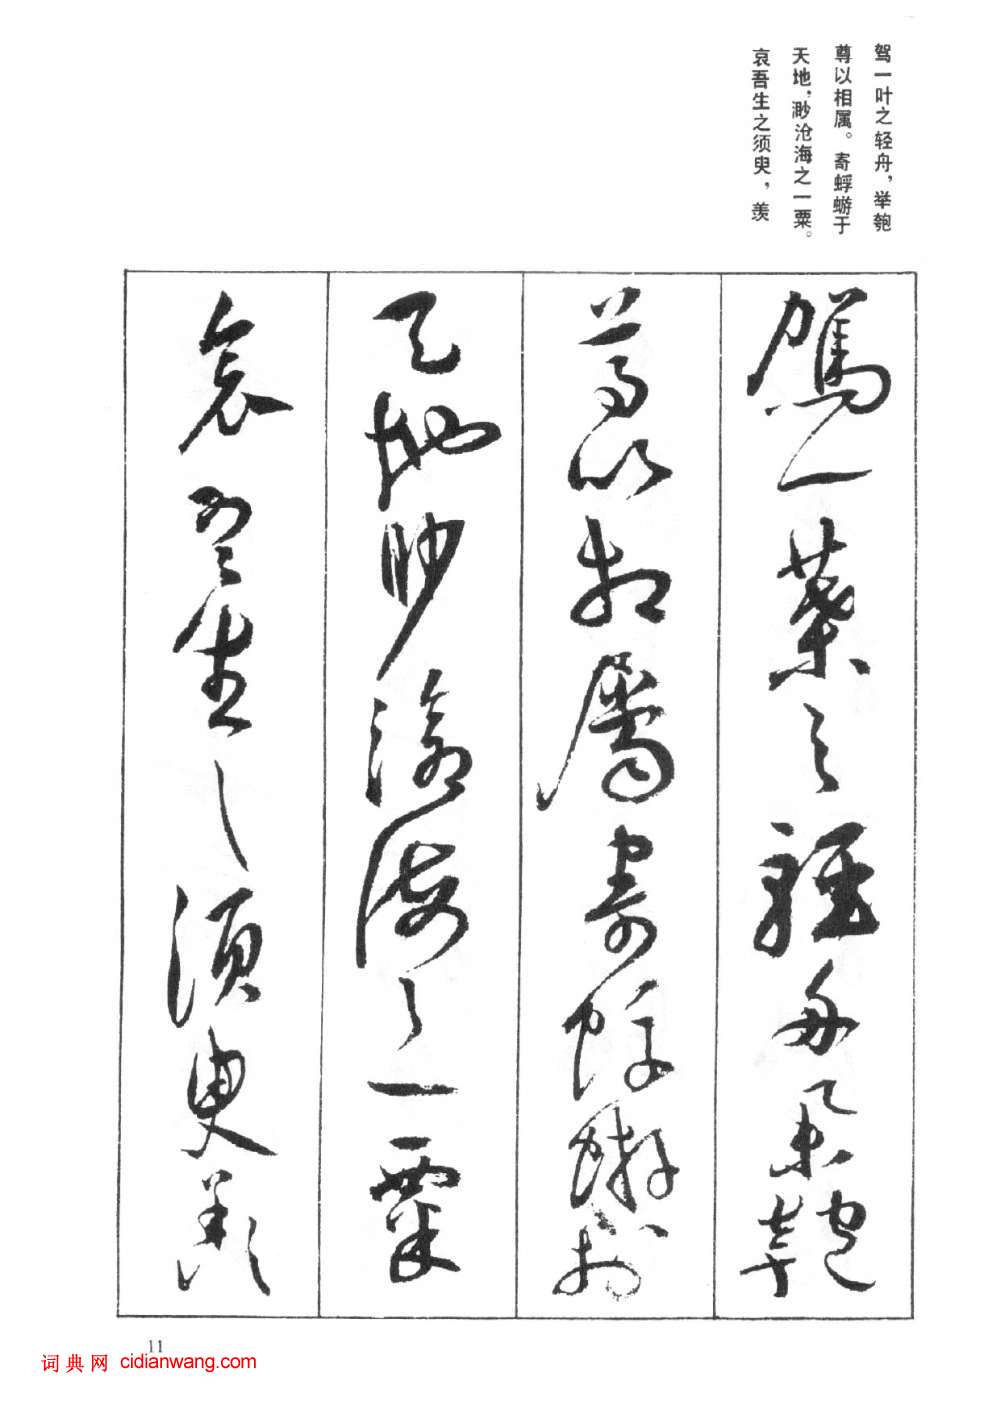 驾一叶之轻舟，举匏
尊以相属。寄蜉蝣于
天地，渺沧海之一粟。
哀吾生之须臾，羡
駕一葉之輕舟舉匏
尊以相屬寄蜉蝣於
天地眇滄海之一粟
哀吾生之須臾羨
11
词典网 cidianwang.com